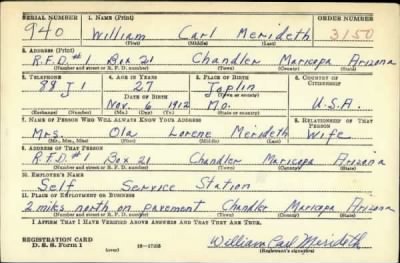 SERIAL NUMBER 1. NAME (Print) ORDER NUMBER
940 William Carl Merideth 3150
(First) (Middle) (Last)
2. ADDRESS (Print)
R.F.D. #1 Box 21 Chandler Maricopa Arizona
(Number and street or R. F. D. number) (Town) (County) (State)
3. TELEPHONE 4. AGE IN YEARS 5. PLACE OF BIRTH 6. COUNTRY OF CITIZENSHIP
88 J 1 27 Joplin
DATE OF BIRTH (Town or county)
Nov. 6 1912 Mo. U.S.A.
(Exchange) (Number) (Mo.) (Day) (Yr.) (State or country)
7. NAME OF PERSON WHO WILL ALWAYS KNOW YOUR ADDRESS 8. RELATIONSHIP OF THAT PERSON
Mrs. Ola Lorene Merideth Wife
(Mr., Mrs., Miss) (First) (Middle) (Last)
9. ADDRESS OF THAT PERSON
R.F.D. #1 Box 21 Chandler Maricopa Arizona
(Number and street or R. F. D. number) (Town) (County) (State)
10. EMPLOYER'S NAME
Self Service Station
11. PLACE OF EMPLOYMENT OR BUSINESS
2 miles north on pavement Chandler Maricopa Arizona
(Number and street or R. F. D. number) (Town) (County) (State)
I AFFIRM THAT I HAVE VERIFIED ABOVE ANSWERS AND THAT THEY ARE TRUE.
REGISTRATION CARD
D. S. S. Form 1 (over) 16-17105 William Carl Merideth
(Registrant's signature)